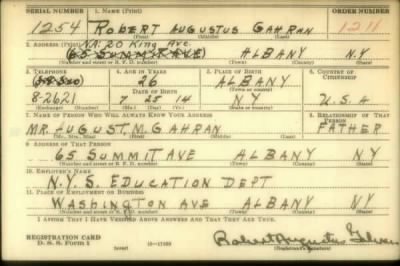 SERIAL NUMBER 1. NAME (Print) ORDER NUMBER
1254 ROBERT AUGUSTUS GAHRAN 1211
(First) (Middle) (Last)
2. ADDRESS (Print) NA: 20 King Ave.
(65 SUMMIT AVE) ALBANY N.Y
(Number and street or R. F. D. number) (Town) (County) (State)
3. TELEPHONE 4. AGE IN YEARS 5. PLACE OF BIRTH 6. COUNTRY OF CITIZENSHIP
26 ALBANY
DATE OF BIRTH (Town or county)
8-2621 7 25 14 N Y U.S.A
(Exchange) (Number) (Mo.) (Day) (Yr.) (State or country)
7. NAME OF PERSON WHO WILL ALWAYS KNOW YOUR ADDRESS 8. RELATIONSHIP OF THAT PERSON
MR. AUGUST. M. GAHRAN FATHER
(Mr., Mrs., Miss) (First) (Middle) (Last)
9. ADDRESS OF THAT PERSON
65 SUMMIT AVE ALBANY NY
(Number and street or R. F. D. number) (Town) (County) (State)
10. EMPLOYER'S NAME
N.Y.S. EDUCATION DEPT
11. PLACE OF EMPLOYMENT OR BUSINESS
WASHINGTON AVE ALBANY NY
(Number and street or R. F. D. number) (Town) (County) (State)
I AFFIRM THAT I HAVE VERIFIED ABOVE ANSWERS AND THAT THEY ARE TRUE.
REGISTRATION CARD
D. S. S. Form 1 (over) 16—17105 Robert Augustus
(Registrant's signature)